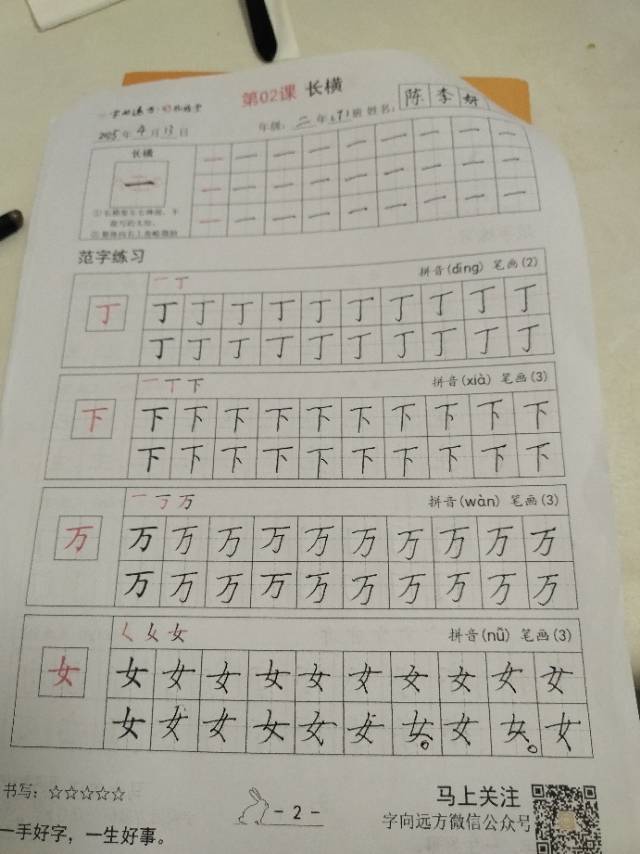 第02课 长横
2025年4月13日 年级：二年(7)班 姓名：陈李妍
长横
一 一 一 一 一 一 一 一 一
一 一 一 一 一 一 一 一 一
一 一 一 一 一 一 一 一 一
范字练习
一 丁 拼音(dīng) 笔画(2)
丁 丁 丁 丁 丁 丁 丁 丁 丁 丁 丁
丁 丁 丁 丁 丁 丁 丁 丁 丁 丁
一 丅 下 拼音(xià) 笔画(3)
下 下 下 下 下 下 下 下 下 下 下
下 下 下 下 下 下 下 下 下 下
一 丁 万 拼音(wàn) 笔画(3)
万 万 万 万 万 万 万 万 万 万 万
万 万 万 万 万 万 万 万 万 万
く 乆 女 拼音(nǚ) 笔画(3)
女 女 女 女 女 女 女 女 女 女 女
女 女 女 女 女 女 女 女 女 女
书写：☆☆☆☆☆
一手好字，一生好事。
- 2 -
马上关注
字向远方微信公众号